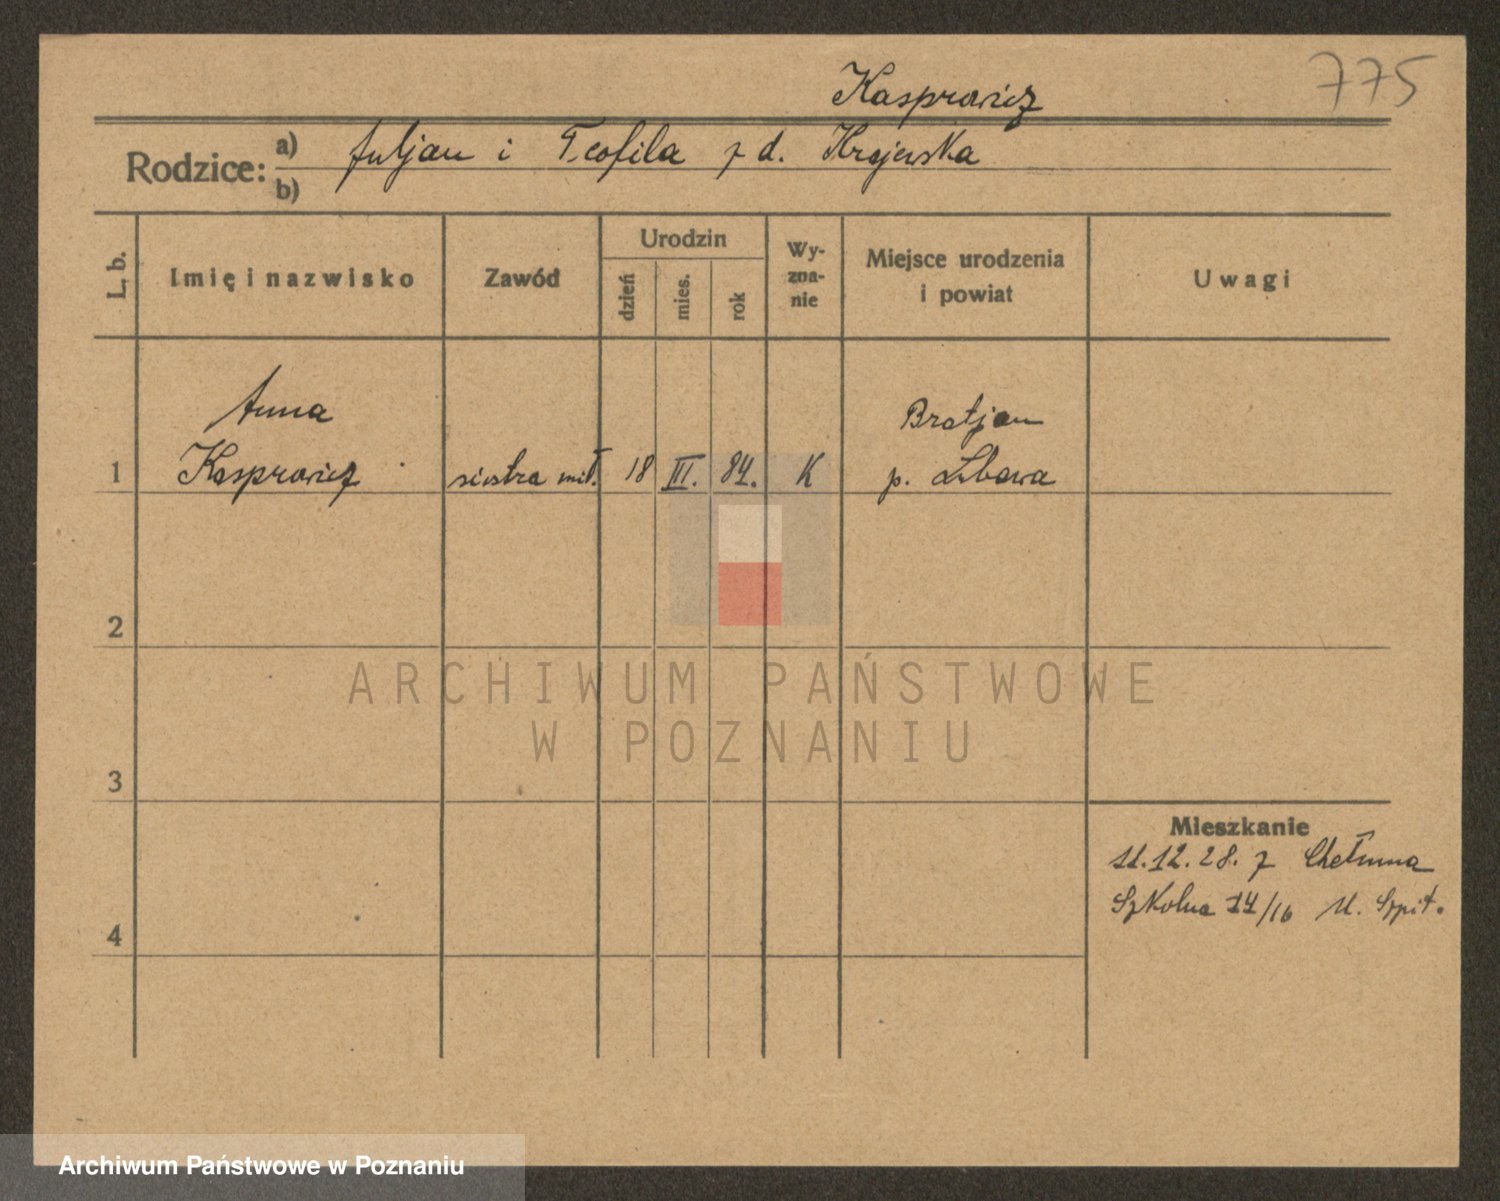 775
Kasprowicz
Rodzice: a) Juljan i Teofila z d. Krajewska
b)
L. b. Imię i nazwisko Zawód Urodzin dzień mies. rok Wyznanie Miejsce urodzenia i powiat Uwagi
Anna Bratjan
1 Kasprowicz siostra mił. 18 III. 84. K p. Lubawa
2
3
4
Mieszkanie
11.12.28. z Chełmna
Szkolna 14/16 M. Szpit.
ARCHIWUM PAŃSTWOWE
W POZNANIU
Archiwum Państwowe w Poznaniu